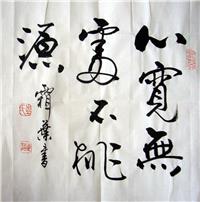 心寬無
處不桃
源
霜葉書